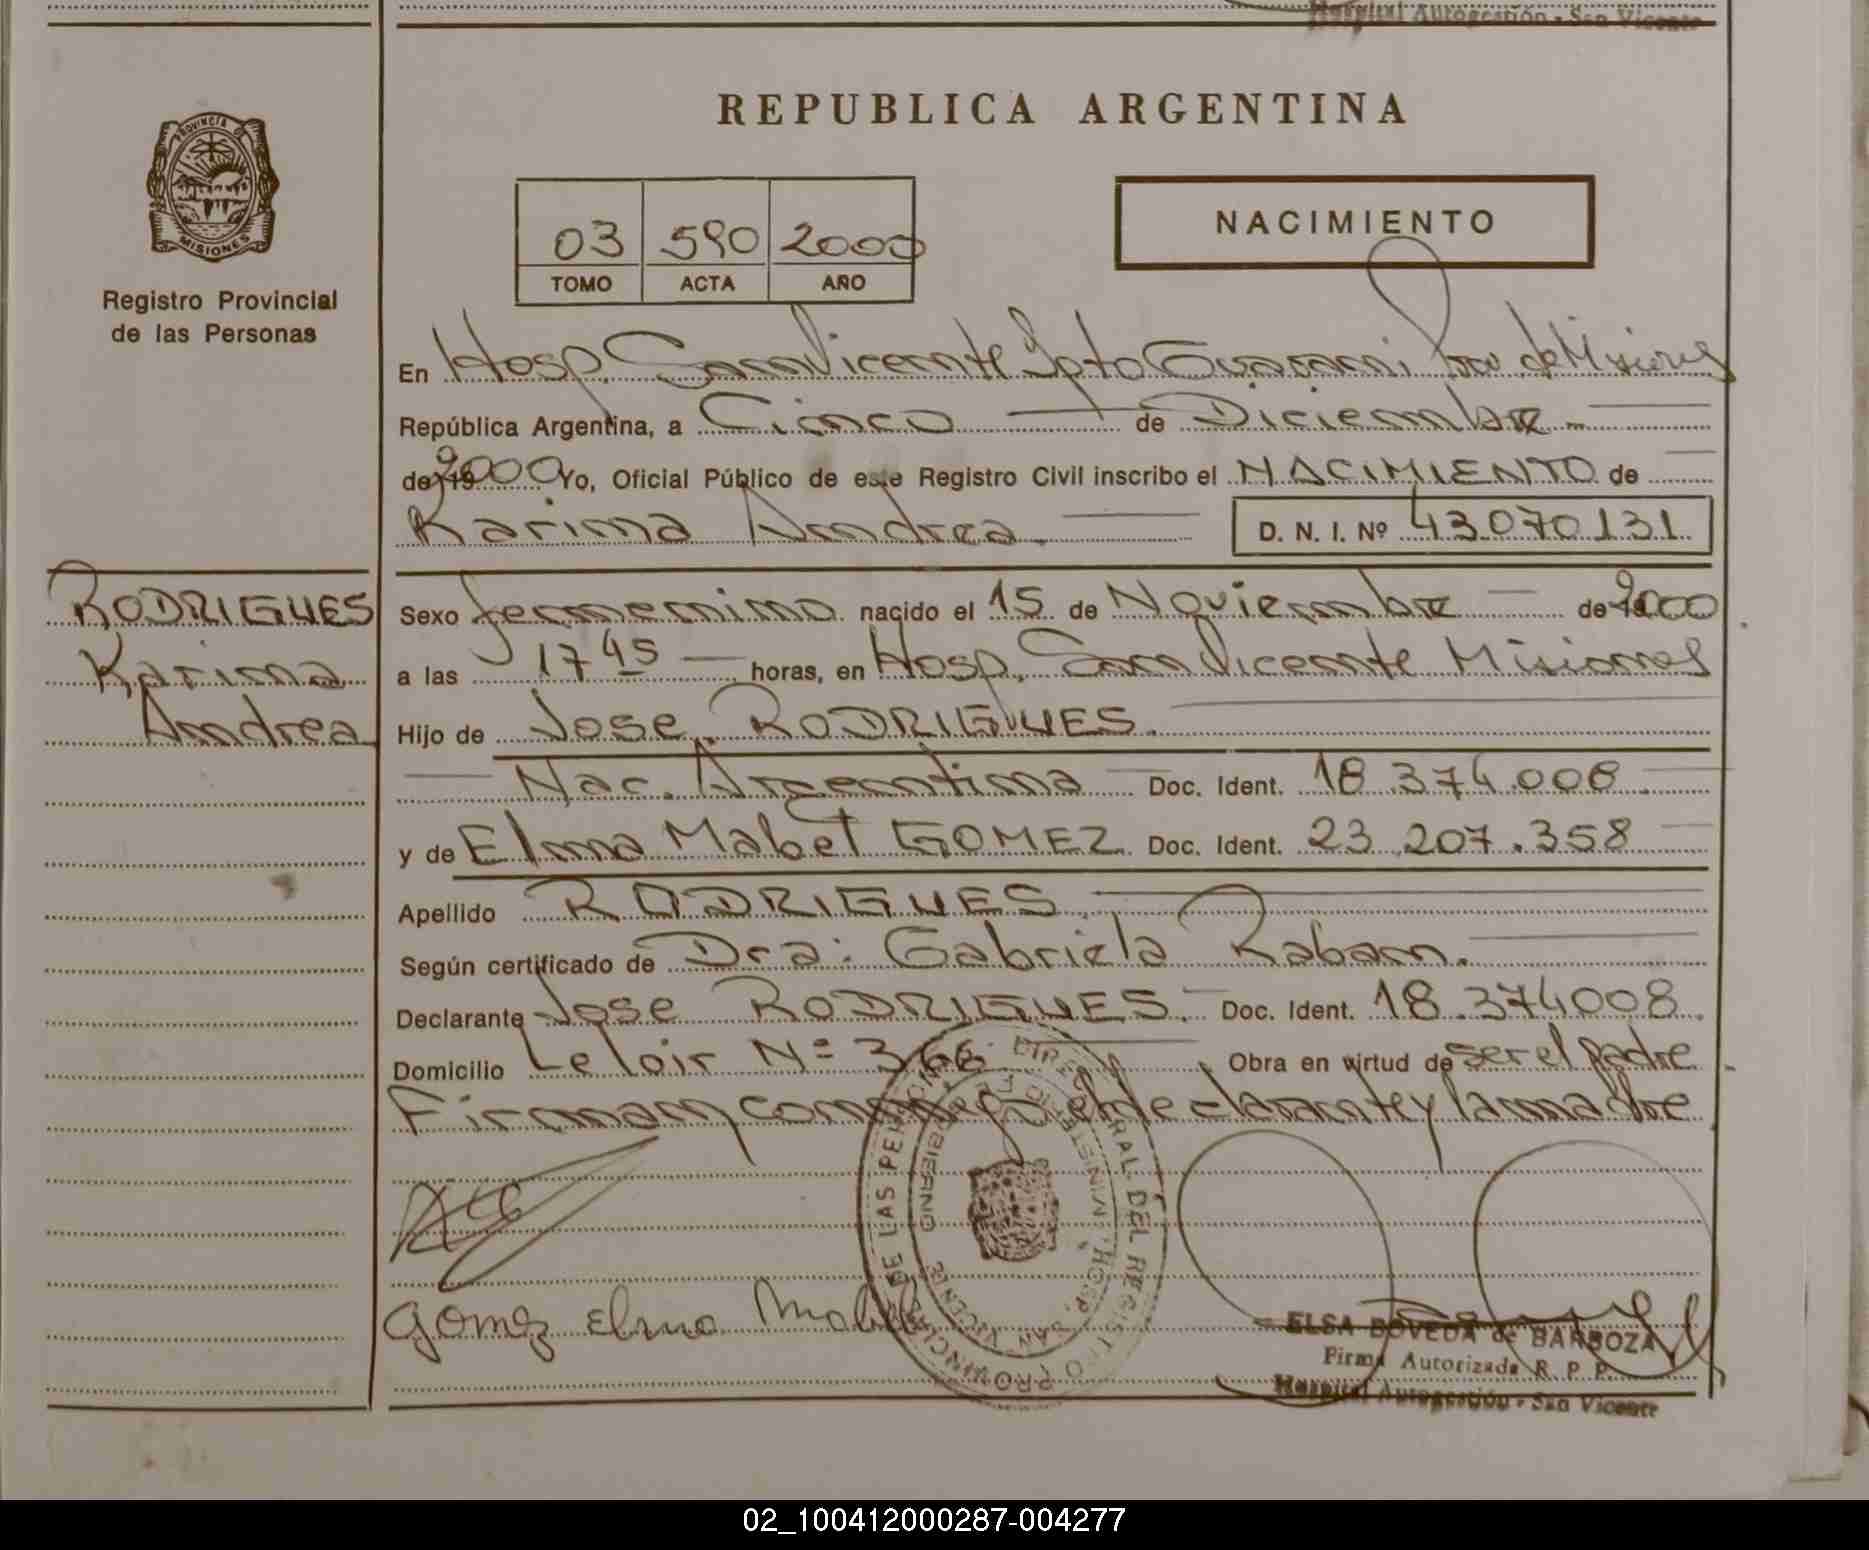 Hospital Autogestión - San Vicente
REPUBLICA ARGENTINA
PROVINCIA DE
MISIONES
Registro Provincial
de las Personas
03 590 2000
TOMO ACTA AÑO
NACIMIENTO
En Hosp. San Vicente Dpto Guarani, Prov. de Misiones
República Argentina, a Cinco de Diciembre
de 19 2000 Yo, Oficial Público de este Registro Civil inscribo el NACIMIENTO de
Karina Andrea. D. N. I. Nº 43070131
RODRIGUES
Karina
Andrea
Sexo femenino nacido el 15 de Noviembre de 19 2000
a las 17 45 horas, en Hosp. San Vicente Misiones
Hijo de Jose RODRIGUES.
Nac. Argentina Doc. Ident. 18.374.008
y de Elma Mabel GOMEZ Doc. Ident. 23.207.358
Apellido RODRIGUES
Según certificado de Dra: Gabriela Raban.
Declarante Jose RODRIGUES. Doc. Ident. 18.374008
Domicilio Leloir Nº 366 Obra en virtud de ser el padre
Firman conmigo el declarante y la madre
Gomez Elma Mabel
ELSA BOVEDA de BARBOZA
Firma Autorizada R. P. P.
Hospital Autogestión - San Vicente
02_100412000287-004277